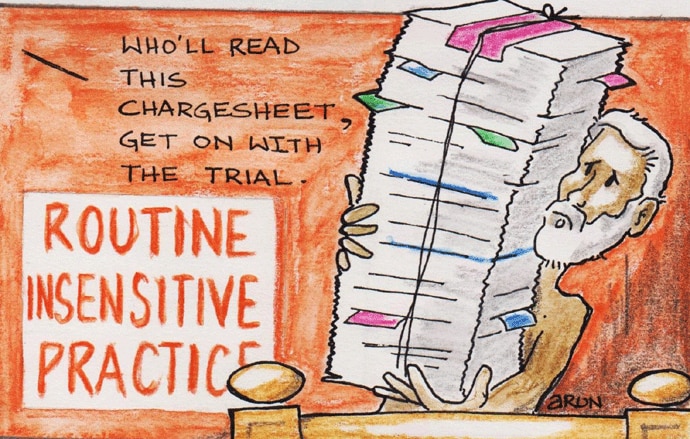 WHO'LL READ
THIS
CHARGESHEET,
GET ON WITH
THE TRIAL.
ROUTINE
INSENSITIVE
PRACTICE
ARUN